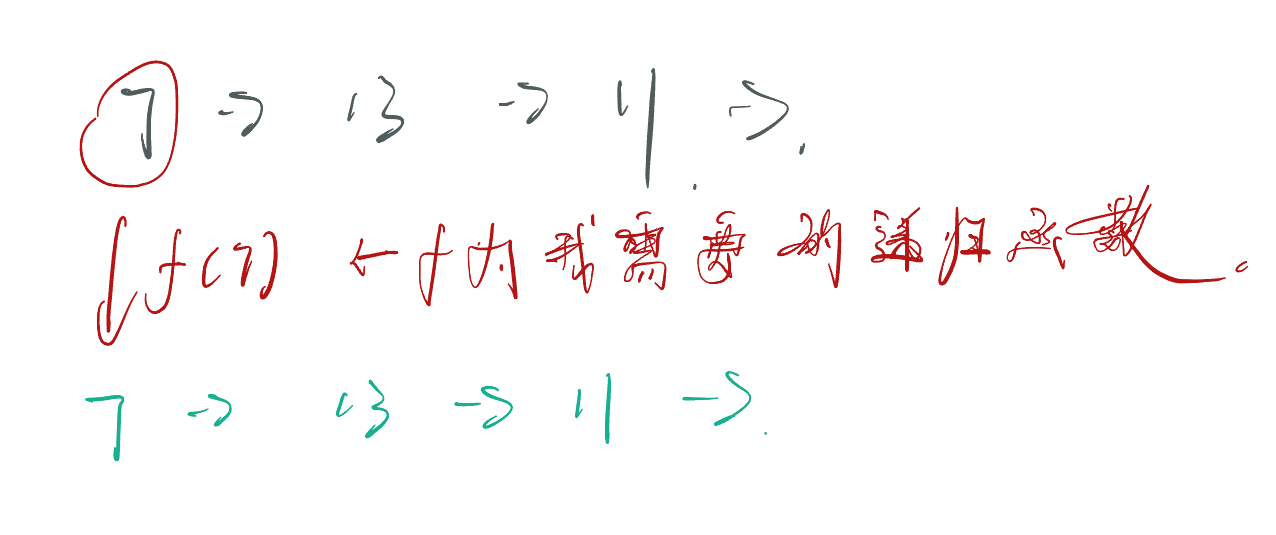 7 → 13 → 11 → .
f(7) ← f为我需要的递归函数。
7 → 13 → 11 → .